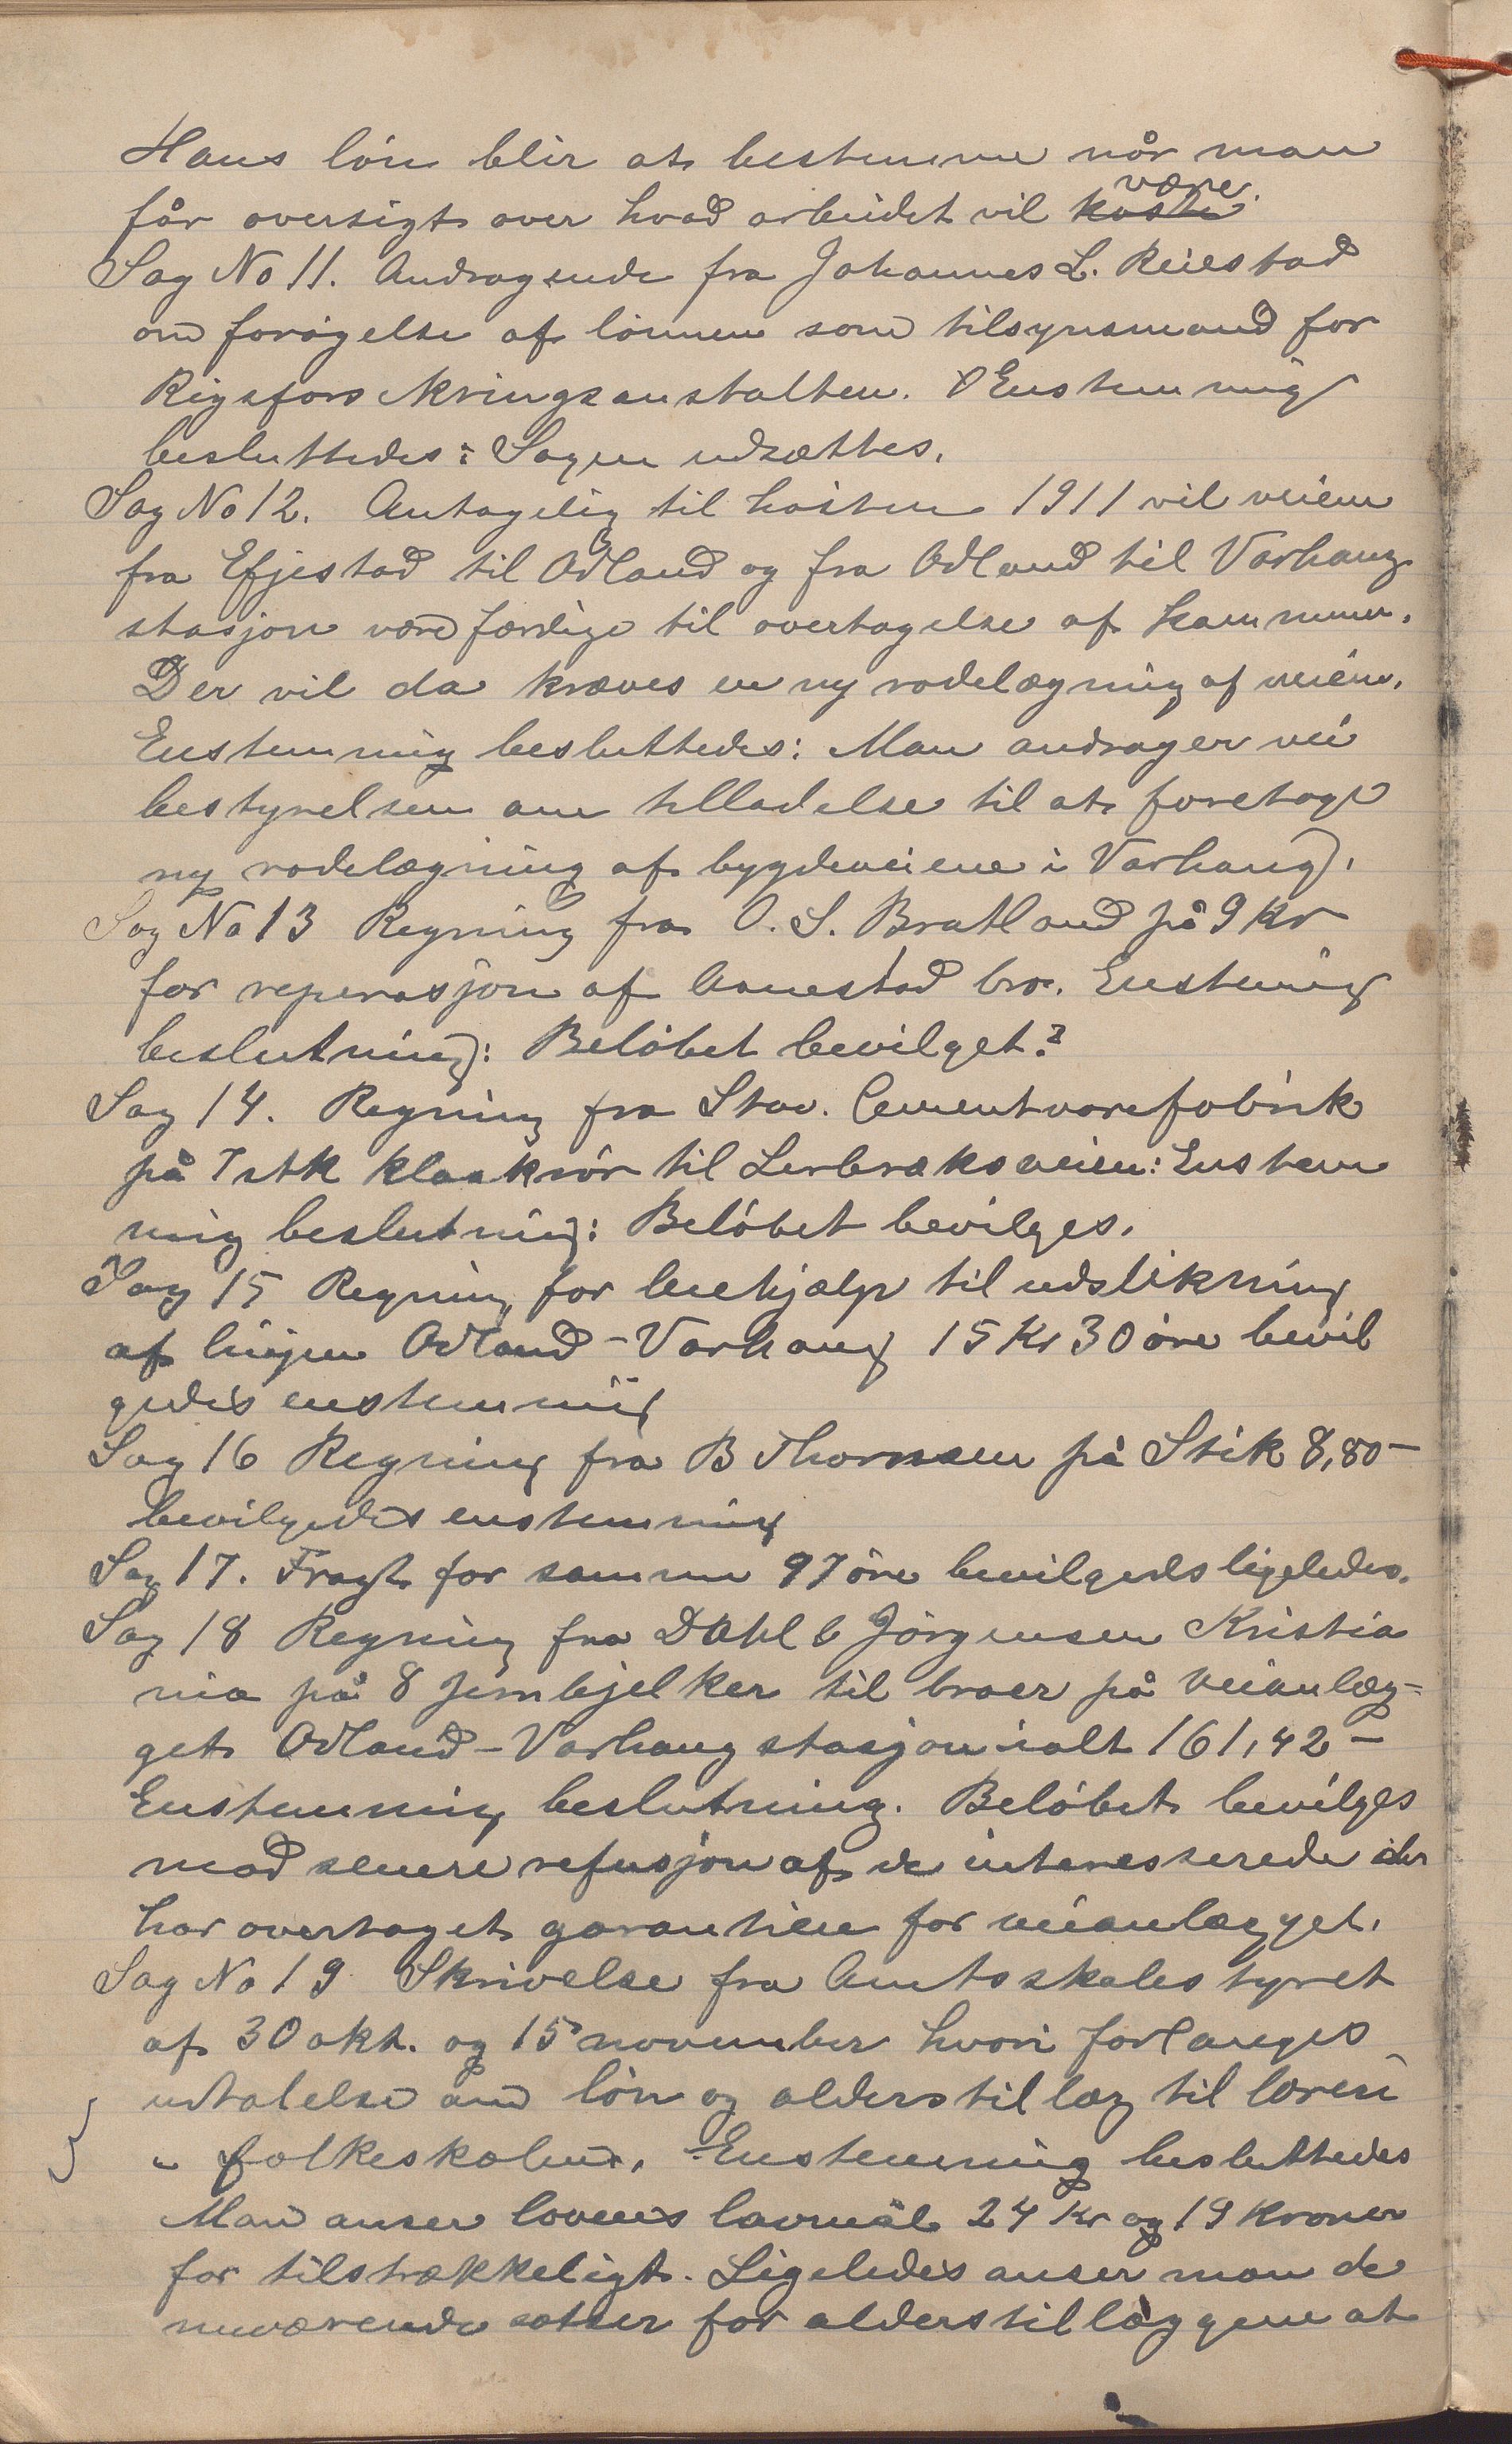 Hans løn blir at bestemme når man
får oversigt over hvad arbeidet vil koste være.
Sag No 11. Andragende fra Johannes L. Reiestad
om forøgelse af lønnen som tilsynsmand for
Rigsforsikringsanstalten. Enstemmig
besluttedes: Sagen udsættes.
Sag No 12. Antagelig til høsten 1911 vil veien
fra Efjestad til Ødland og fra Ødland til Varhaug
stasjon være færdige til overtagelse af kommunen.
Der vil da kræves en ny rodelægning af veien.
Enstemmig besluttedes: Man andrager vei
bestyrelsen om tilladelse til at foretage
ny rodelægning af bygdeveiene i Varhaug.
Sag No 13 Regning fra O. S. Bratland på 9 kr
for reperasjon af Aanestad bro. Enstemig
beslutning: Beløbet bevilget.
Sag 14. Regning fra Stav. Cementvarefabrik
på 7 stk kloakrør til Lerbræksveien: Enstem
mig beslutning: Beløbet bevilges.
Sag 15 Regning for leiehjælp til udstikning
af linjen Ødland-Varhaug 15 Kr 30 øre bevil
gedes enstemmig
Sag 16 Regning fra B Thornsen på Stik 8,80-
bevilgedes enstemmig
Sag 17. Fragt for samme 97 øre bevilgeds ligeledes.
Sag 18 Regning fra Dahl & Jørgensen Kristia
nia på 8 jernbjelker til broer på veianlæg-
get Ødland-Varhaug stasjon ialt 161,42-
Enstemmig beslutning. Beløbet bevilges
mod senere refusjon af de interesserede der
har overtaget garantien for veianlægget.
Sag No 19 Skrivelse fra Amtsskolestyret
af 30 okt. og 15 november hvori forlanges
udtalelse om løn og alderstillæg til lærere i
" folkeskolen. Enstemmig besluttedes
Man anser lovens lavmål 24 kr og 19 kroner
for tilstrækkeligt. Ligeledes anser man de
nuværende satser for alderstillæggene at